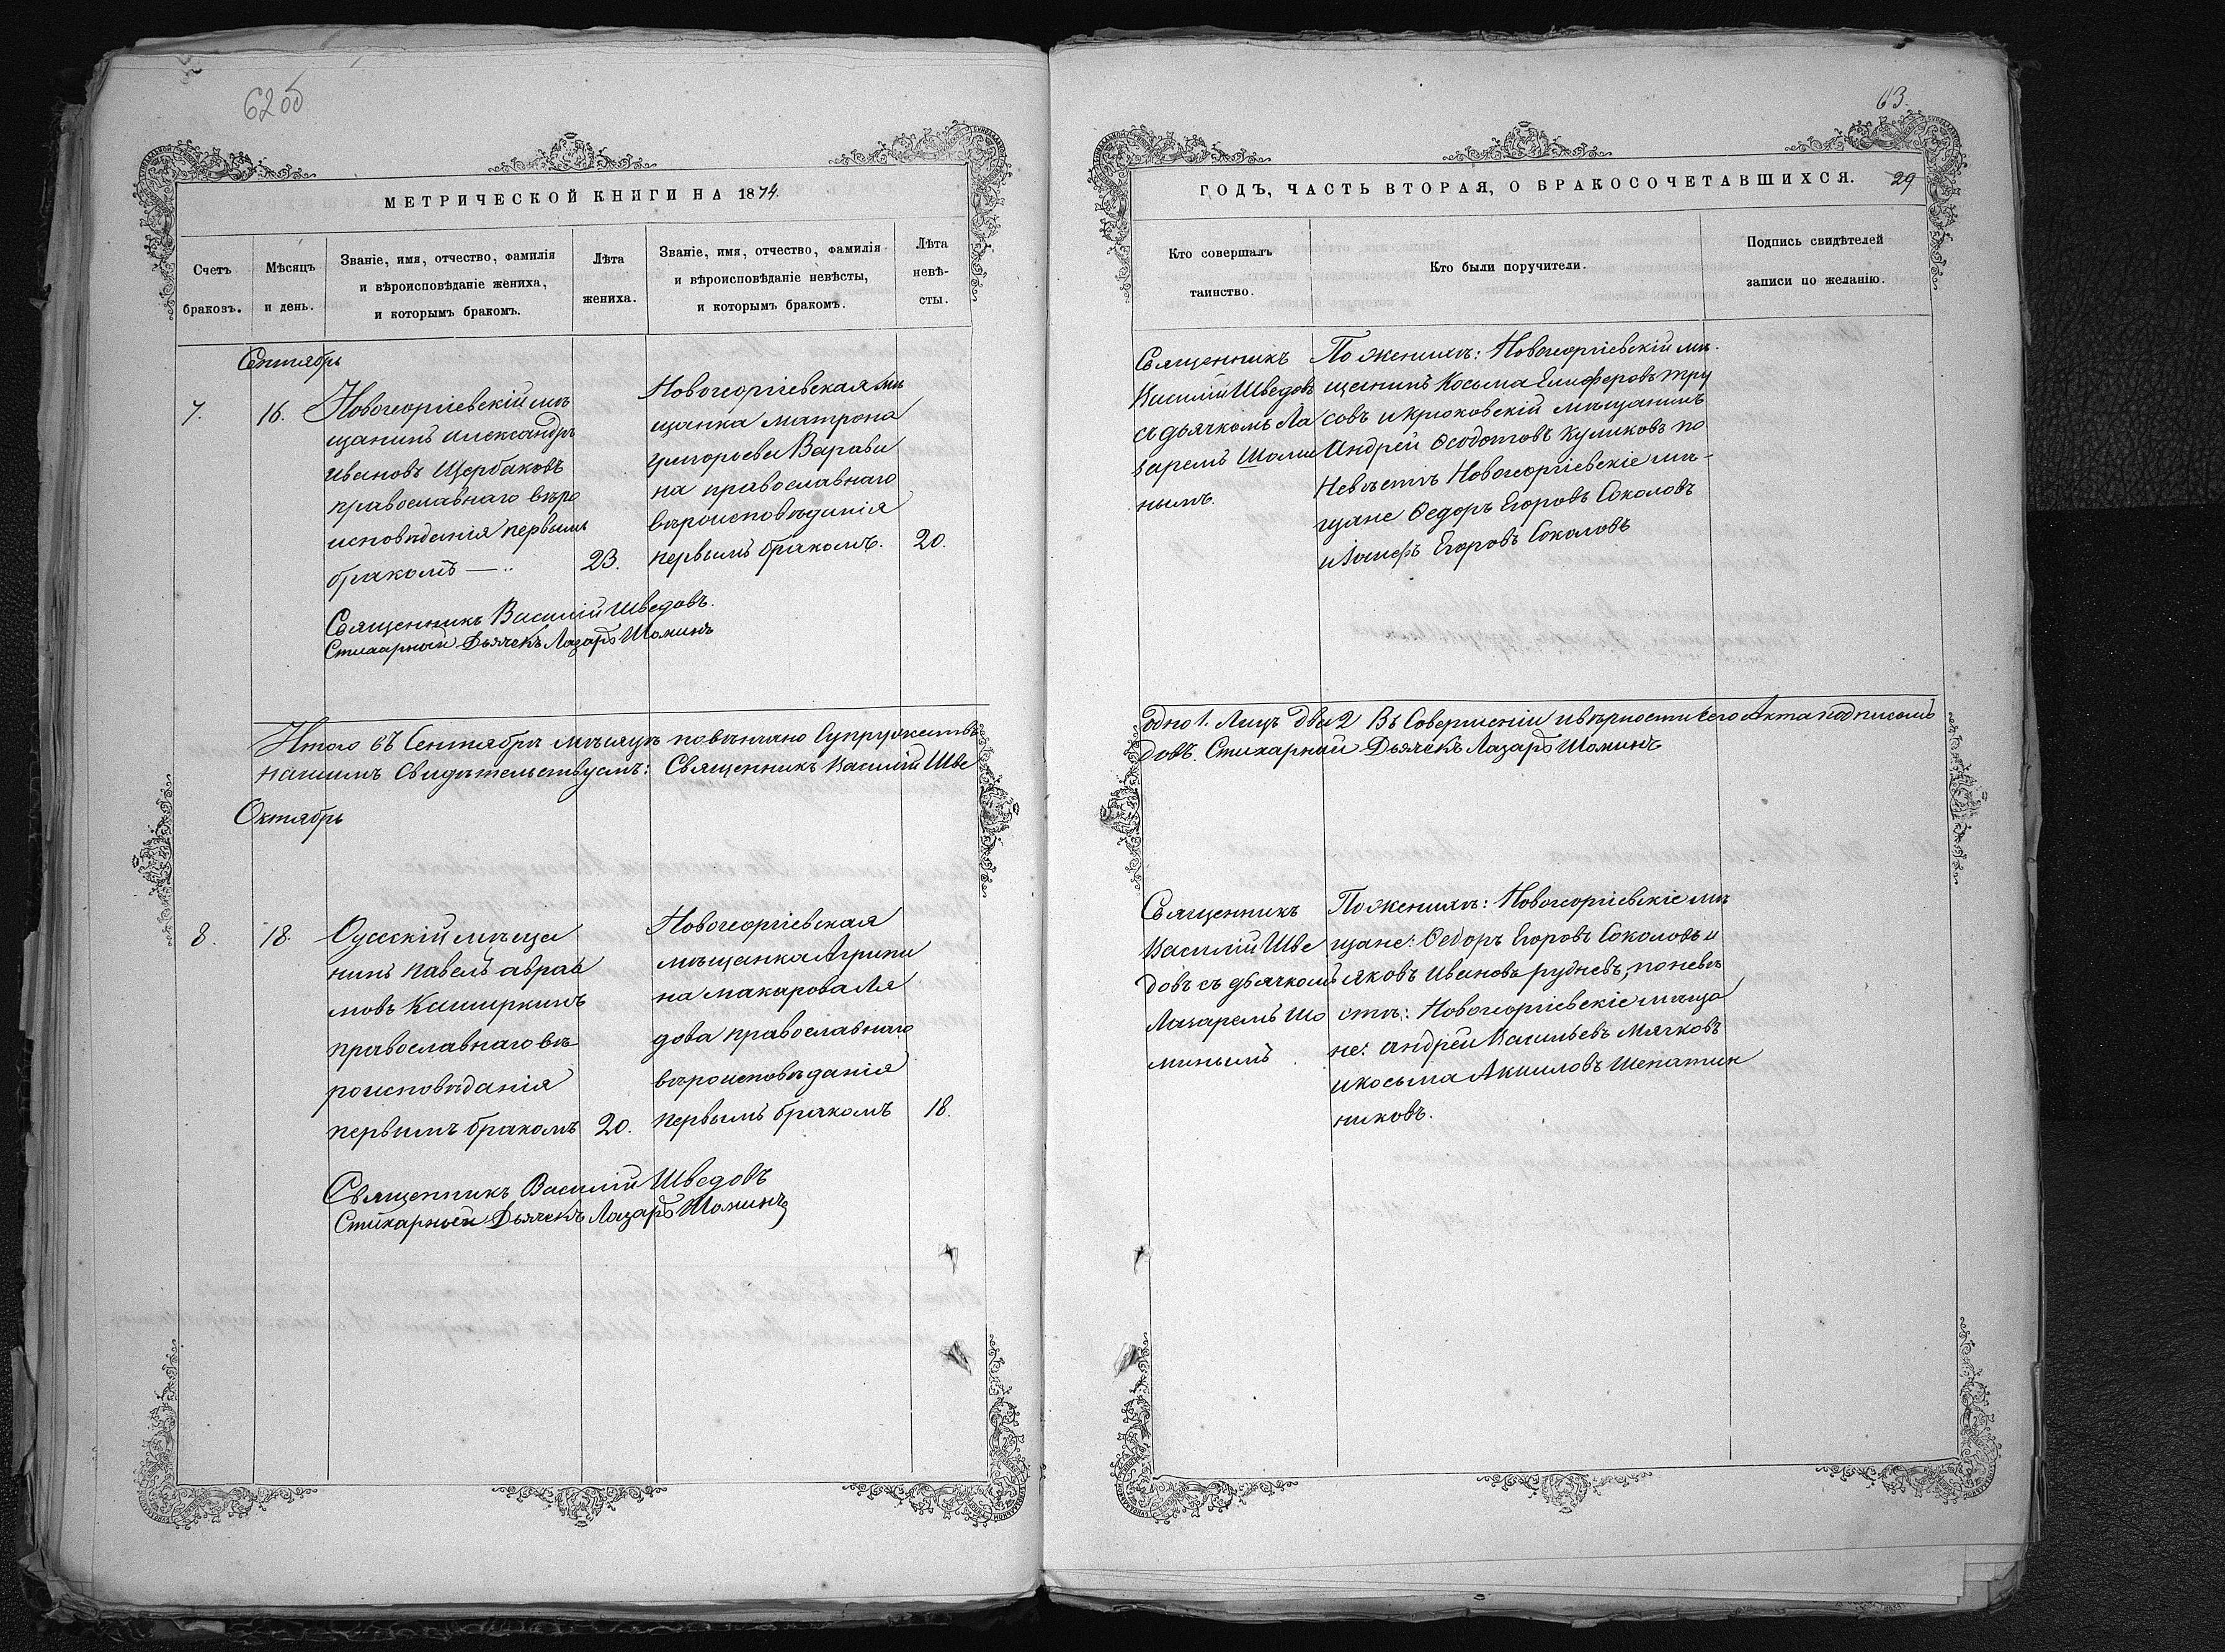 62об
МЕТРИЧЕСКОЙ КНИГИ НА 1874.
Счетъ
браковъ.
Мѣсяцъ
и день.
Званіе, имя, отчество, фамилія
и вѣроисповѣданіе жениха,
и которымъ бракомъ.
Лѣта
жениха.
Званіе, имя, отчество, фамилія
и вѣроисповѣданіе невѣсты,
и которымъ бракомъ.
Лѣта
невѣ-
сты.
Сентябрь
7.
16.
Новогеоргіевскій мѣ
щанинъ Александръ
Ивановъ Щербаковъ
православнаго вѣро
исповѣданія первымъ
бракомъ —
23.
Новогеоргіевская мѣ
щанка Матрона
Григорьева Варави
на православнаго
вѣроисповѣданія
первымъ бракомъ.
20.
Священникъ Василій Шведовъ.
Стихарный Дьячекъ Лазарь Шоминъ
Итого въ Сентябрѣ мѣсяцѣ повѣнчано Супружествъ
нашимъ Свидѣтельствуемъ: Священникъ Василій Шве
Октябрь
8.
18.
Одесскій мѣща
нинъ Павелъ Авраа
мовъ Каширкинъ
православнаго вѣ
роисповѣданія
первымъ бракомъ
20.
Новогеоргіевская
мѣщанка Агрипи
на Макарова Ля
дова православнаго
вѣроисповѣданія
первымъ бракомъ
18.
Священникъ Василій Шведовъ
Стихарный Дьячекъ Лазарь Шоминъ
63.
ГОДЪ, ЧАСТЬ ВТОРАЯ, О БРАКОСОЧЕТАВШИХСЯ.
29
Кто совершалъ
таинство.
Кто были поручители.
Подпись свидѣтелей
записи по желанію.
Священникъ
Василій Шведовъ
съ дьячкомъ Ла
заремъ Шоми
нымъ.
По женихѣ: Новогеоргіевскій мѣ
щанинъ Косьма Елиферовъ Тру
совъ и Крюковскій мѣщанинъ
Андрей Ѳеодотовъ Куликовъ по
Невѣстѣ Новогеоргіевскіе мѣ-
щане Ѳедоръ Егоровъ Соколовъ
и Іосифъ Егоровъ Соколовъ
одно 1. Лицъ два 2 Въ Совершеніи и вѣрности сего Акта подписомъ
довъ. Стихарный Дьячекъ Лазарь Шоминъ
Священникъ
Василій Шве
довъ съ дьячкомъ
Лазаремъ Шо
минымъ
По женихѣ: Новогеоргіевскіе мѣ
щане: Ѳедоръ Егоровъ Соколовъ и
Яковъ Ивановъ Рудневъ, по невѣ
стѣ: Новогеоргіевскіе мѣща
не: Андрей Васильевъ Мячковъ
и Косьма Акииловъ Шепатин
никовъ.